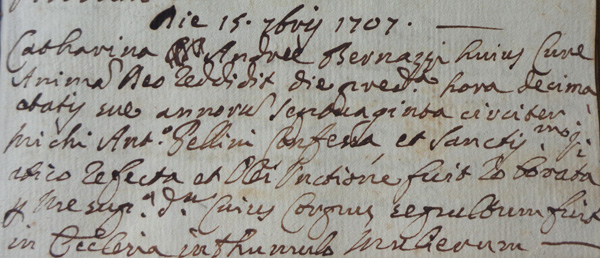 Die 15. 7bris 1707.
Catharina Andree Bernazzi huius Cure
Animã Deo reddidit die pred.ta hora decima
etatis sue annorũ septuaginta circiter
michi Ant.o Pellini Confessa, et Sanctiss.mo Vi
atico refecta et Olei Unctione fuit roborata
me sup.a d.m Cuius Corpus sepultum fuit
in Ecclesia in thumulo Mulierum